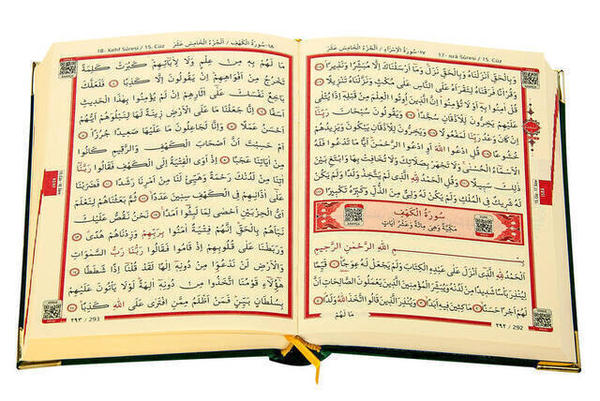 ١٧- سُورَةُ الْاِسْرَاءِ / اَلْجُزْءُ الْخَامِسُ عَشَرَ 17- isrâ Sûresi / 15. Cüz
وَبِالْحَقِّ اَنْزَلْنَاهُ وَبِالْحَقِّ نَزَلَ وَمَا اَرْسَلْنَاكَ اِلَّا مُبَشِّرًا وَنَذِيرًا
وَقُرْاٰنًا فَرَقْنَاهُ لِتَقْرَاَهُ عَلَى النَّاسِ عَلٰى مُكْثٍ وَنَزَّلْنَاهُ تَنْزِيلًا
قُلْ اٰمِنُوا بِهِ اَوْ لَا تُؤْمِنُوا اِنَّ الَّذِينَ اُوتُوا الْعِلْمَ مِنْ قَبْلِهِ اِذَا يُتْلٰى
عَلَيْهِمْ يَخِرُّونَ لِلْاَذْقَانِ سُجَّدًا وَيَقُولُونَ سُبْحَانَ رَبِّنَا
اِنْ كَانَ وَعْدُ رَبِّنَا لَمَفْعُولًا وَيَخِرُّونَ لِلْاَذْقَانِ يَبْكُونَ وَيَزِيدُهُمْ
خُشُوعًا قُلِ ادْعُوا اللّٰهَ اَوِ ادْعُوا الرَّحْمٰنَ اَيًّا مَا تَدْعُوا فَلَهُ
الْاَسْمَاءُ الْحُسْنٰى وَلَا تَجْهَرْ بِصَلَاتِكَ وَلَا تُخَافِتْ بِهَا وَابْتَغِ بَيْنَ
ذٰلِكَ سَبِيلًا وَقُلِ الْحَمْدُ لِلّٰهِ الَّذِي لَمْ يَتَّخِذْ وَلَدًا وَلَمْ يَكُنْ لَهُ
شَرِيكٌ فِي الْمُلْكِ وَلَمْ يَكُنْ لَهُ وَلِيٌّ مِنَ الذُّلِّ وَكَبِّرْهُ تَكْبِيرًا
سُورَةُ الْكَهْفِ
مَكِّيَّةٌ وَهِيَ مِائَةٌ وَعَشْرُ اٰيَاتٍ
بِسْمِ اللّٰهِ الرَّحْمٰنِ الرَّحِيمِ
اَلْحَمْدُ لِلّٰهِ الَّذِي اَنْزَلَ عَلٰى عَبْدِهِ الْكِتَابَ وَلَمْ يَجْعَلْ لَهُ عِوَجًا قَيِّمًا
لِيُنْذِرَ بَأْسًا شَدِيدًا مِنْ لَدُنْهُ وَيُبَشِّرَ الْمُؤْمِنِينَ الَّذِينَ يَعْمَلُونَ الصَّالِحَاتِ اَنَّ
لَهُمْ اَجْرًا حَسَنًا مَاكِثِينَ فِيهِ اَبَدًا وَيُنْذِرَ الَّذِينَ قَالُوا اتَّخَذَ اللّٰهُ وَلَدًا
مَا لَهُمْ
٢٩٢ / 292
18- Kehf Sûresi / 15. Cüz ١٨- سُورَةُ الْكَهْفِ / اَلْجُزْءُ الْخَامِسُ عَشَرَ
مَا لَهُمْ بِهِ مِنْ عِلْمٍ وَلَا لِاٰبَائِهِمْ كَبُرَتْ كَلِمَةً
تَخْرُجُ مِنْ اَفْوَاهِهِمْ اِنْ يَقُولُونَ اِلَّا كَذِبًا فَلَعَلَّكَ
بَاخِعٌ نَفْسَكَ عَلٰى اٰثَارِهِمْ اِنْ لَمْ يُؤْمِنُوا بِهٰذَا الْحَدِيثِ
اَسَفًا اِنَّا جَعَلْنَا مَا عَلَى الْاَرْضِ زِينَةً لَهَا لِنَبْلُوَهُمْ اَيُّهُمْ
اَحْسَنُ عَمَلًا وَاِنَّا لَجَاعِلُونَ مَا عَلَيْهَا صَعِيدًا جُرُزًا
اَمْ حَسِبْتَ اَنَّ اَصْحَابَ الْكَهْفِ وَالرَّقِيمِ كَانُوا
مِنْ اٰيَاتِنَا عَجَبًا اِذْ اَوَى الْفِتْيَةُ اِلَى الْكَهْفِ فَقَالُوا رَبَّنَا
اٰتِنَا مِنْ لَدُنْكَ رَحْمَةً وَهَيِّئْ لَنَا مِنْ اَمْرِنَا رَشَدًا فَضَرَبْنَا
عَلٰى اٰذَانِهِمْ فِي الْكَهْفِ سِنِينَ عَدَدًا ثُمَّ بَعَثْنَاهُمْ لِنَعْلَمَ
اَيُّ الْحِزْبَيْنِ اَحْصٰى لِمَا لَبِثُوا اَمَدًا نَحْنُ نَقُصُّ عَلَيْكَ
نَبَاَهُمْ بِالْحَقِّ اِنَّهُمْ فِتْيَةٌ اٰمَنُوا بِرَبِّهِمْ وَزِدْنَاهُمْ هُدًى
وَرَبَطْنَا عَلٰى قُلُوبِهِمْ اِذْ قَامُوا فَقَالُوا رَبُّنَا رَبُّ السَّمٰوَاتِ
وَالْاَرْضِ لَنْ نَدْعُوَا مِنْ دُونِهِ اِلٰهًا لَقَدْ قُلْنَا اِذًا شَطَطًا
هٰؤُلَاءِ قَوْمُنَا اتَّخَذُوا مِنْ دُونِهِ اٰلِهَةً لَوْلَا يَأْتُونَ عَلَيْهِمْ
بِسُلْطَانٍ بَيِّنٍ فَمَنْ اَظْلَمُ مِمَّنِ افْتَرٰى عَلَى اللّٰهِ كَذِبًا
٢٩٣ / 293